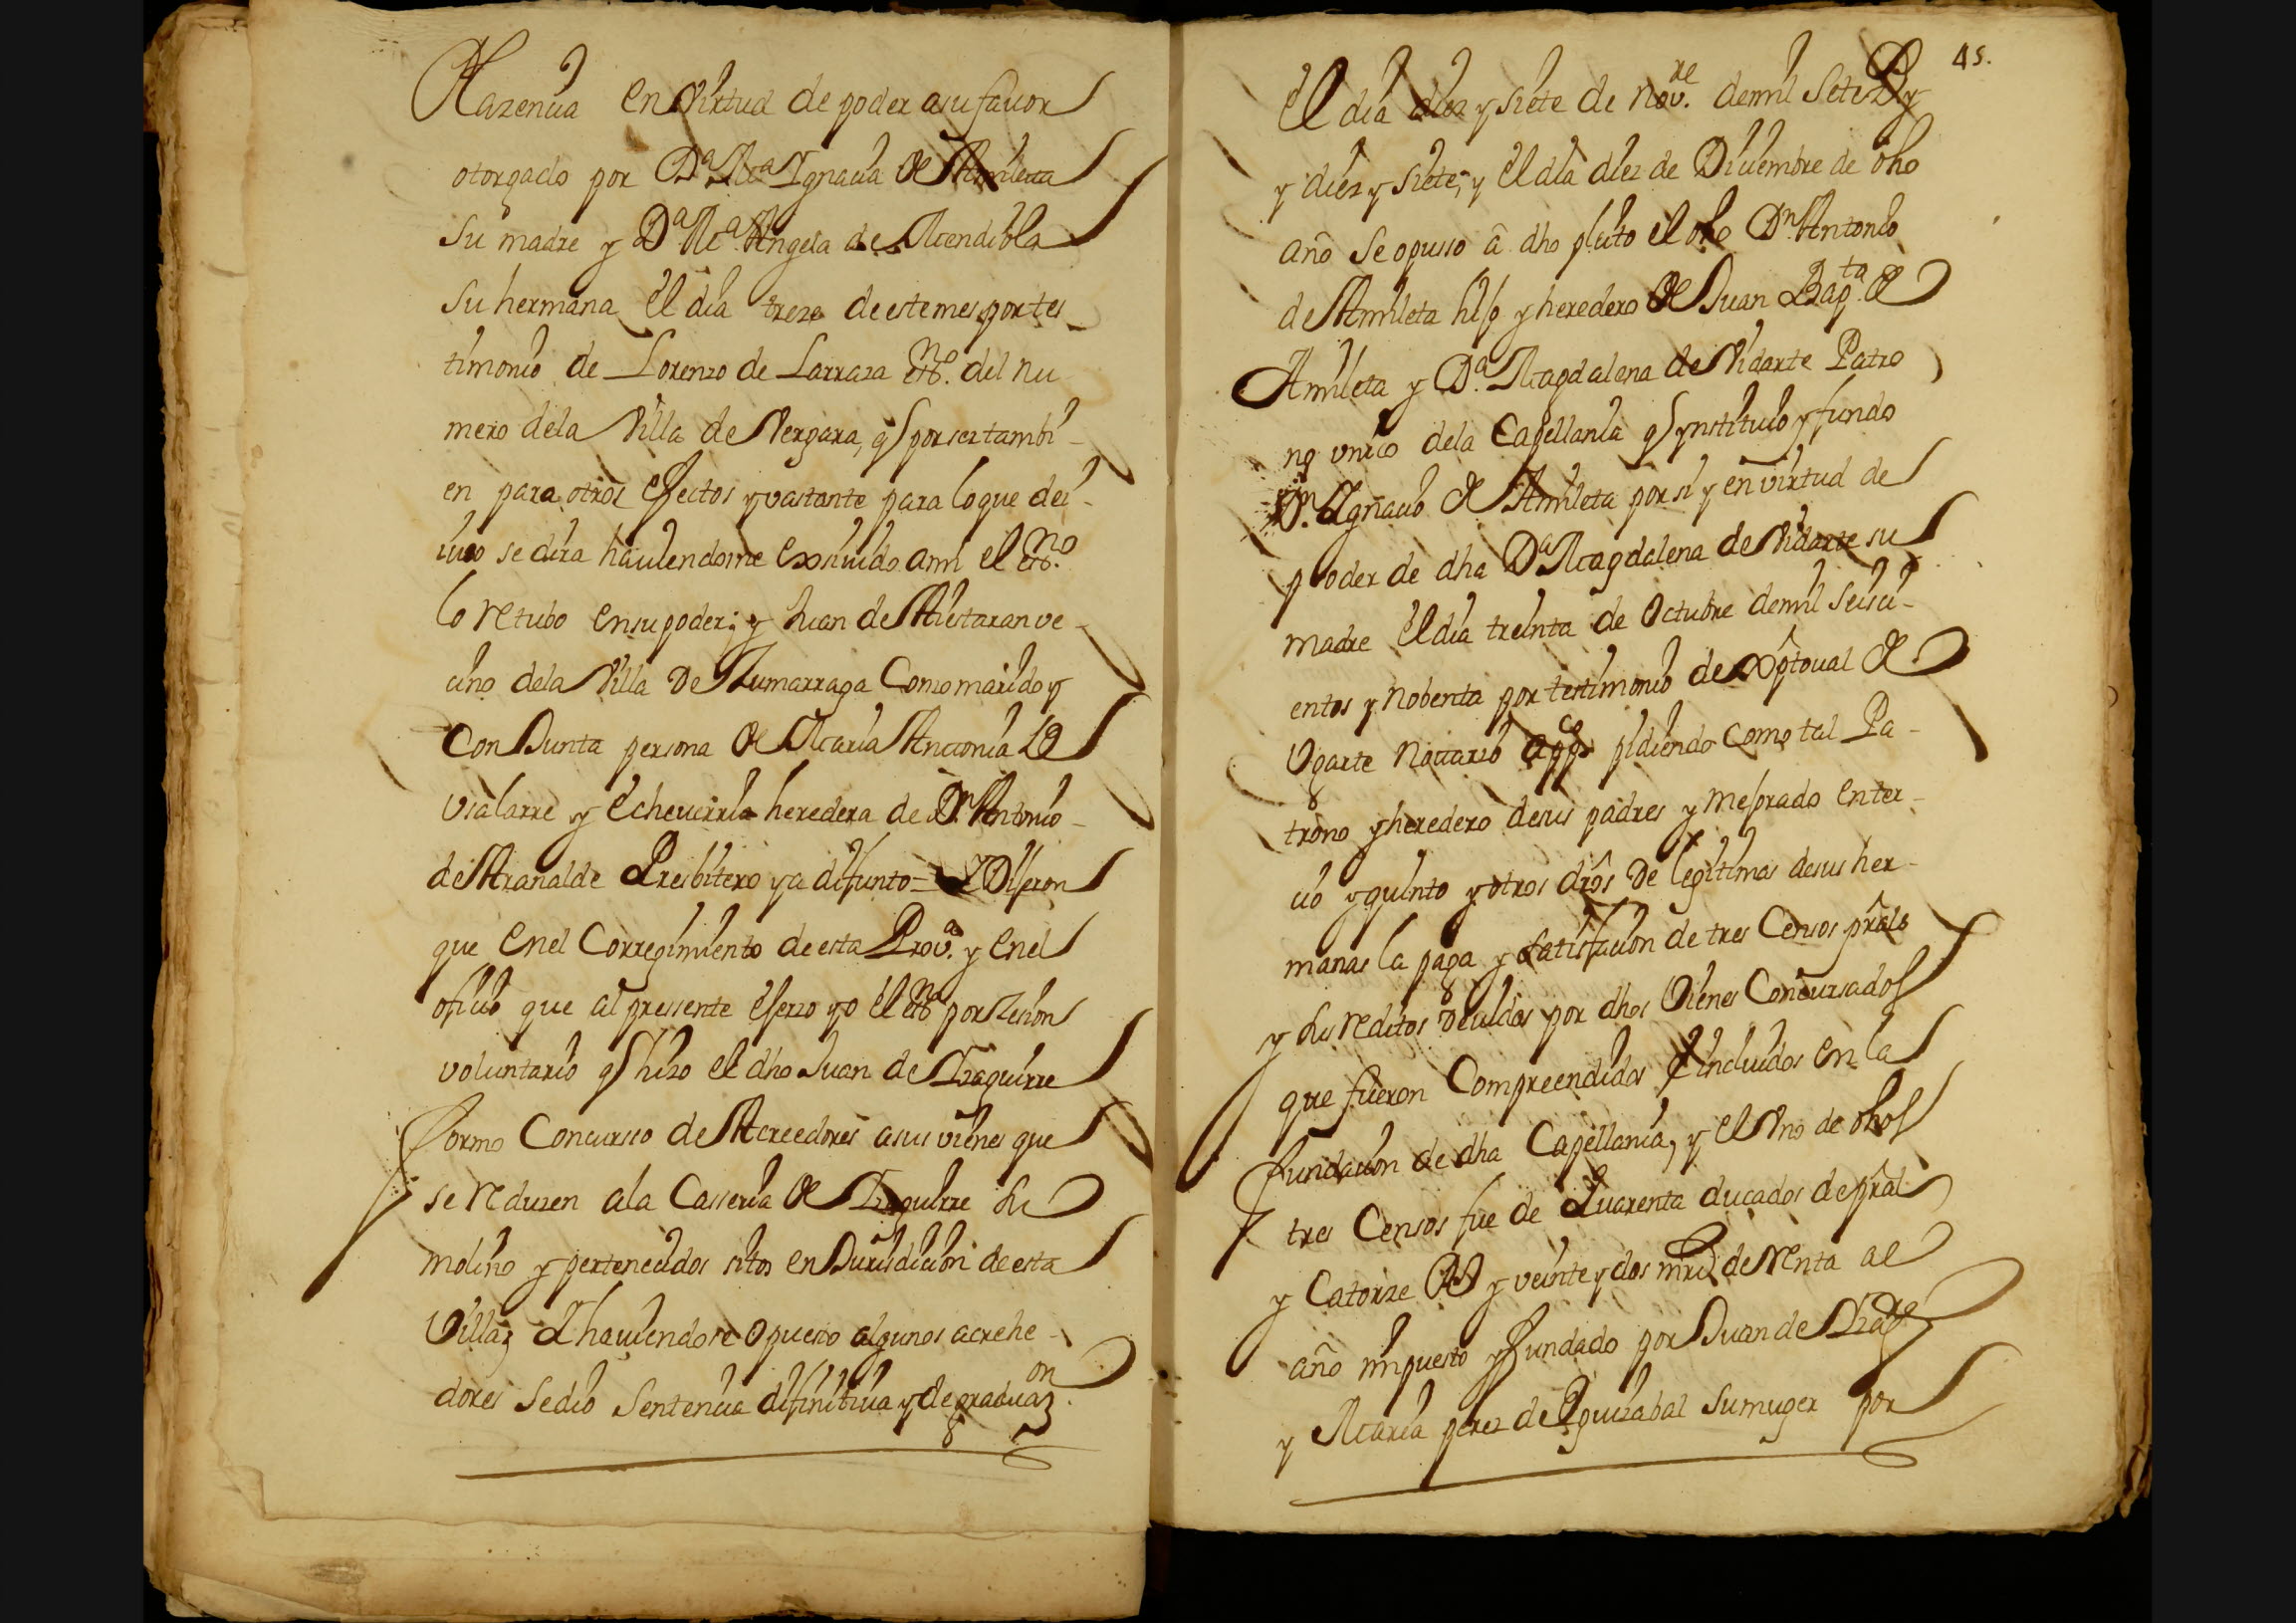 Hazencia en virtud de poder a su fauor
otorgado por Dª Mª Ygnacia de Amileta
su madre y Dª Mª Angela de Mendibla
su hermana el dia treze de este mes por tes-
timonio de Lorenzo de Larraza essno. del nu
mero dela Villa de Vergara, q por ser tambi-
en para otros efectos y vastante para lo que de
se dira hauiendome exsiuido ami el essno.
lo retubo en su poder; y Juan de Aiestaran ve-
cino dela Villa de Zumarraga Como marido y
Conjunta persona de Maria Antonia
vialarre y Echeuerria heredera de Dn Antonio
de Aranalde Presbitero ya difunto = Y Dijeron
que enel Corregimiento de esta Prova. y enel
oficio que al pressente ejerzo yo el essno por zesion
voluntario q hizo el dho Juan de Yzaguirre
formo Concursso de Acreedores asus vienes que
se reduzen ala Casseria de Yzaguirre su
molino y pertenecidos sitos en Jurisdicion de esta
Villa; Y hauiendose opuesto algunos acrehe-
dores se dio Sentencia difinitiua y de graduazon.
45.
El dia diez y siete de Novre. de mil Setezs y
y diez y siete, y el dia diez de Diciembre de dho
año se opusso â dho pleito el dho Dn Antonio
de Amileta hijo y heredero de Juan Bapta. de
Amileta y Dª Magdalena de Vidarte Patro
no vnico dela Capellania q ynstituio y fundo
Dn. Ygnacio de Amileta por si y en virtud de
poder de dha Dª Magdalena de Vidarte su
madre el dia treinta de Octubre de mil seisci-
entos y nobenta por testimonio de Xptoual de
Vgarte Notario appco pidiendo como tal Pa-
trono y heredero de sus padres y mejorado en ter-
cio y quinto y otros drôs de legitimas de sus her-
manas la paga y satisfacion de tres Censos prâls
y sus reditos deuidos por dhos Vienes Concursados
que fueron Compreendidos é incluidos en la
fundacion de dha Capellania, y el Vno de dhos
tres Censos fue de Quarenta ducados de prâl
y Catorze Rs y veinte y dos mrs de renta al
año impuesto y fundado por Juan de Yzagre
y Maria perez de Eguizabal su muger por